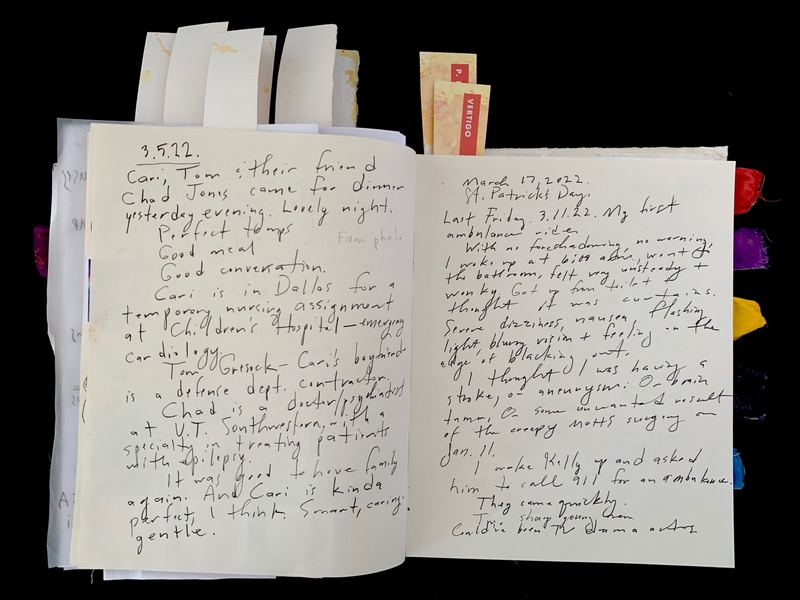 P.
VERTIGO
3.5.22.
Cari, Tom & their friend
Chad Jones came for dinner
yesterday evening. Lovely night.
Perfect temps
Fam photo
Good meal
Good conversation.
Cari is in Dallas for a
temporary nursing assignment
at Children's Hospital – emergency
cardiology.
Tom Gresock – Cari's boyfriend
is a defense dept. contractor.
Chad is a doctor/psychiatrist
at U.T. Southwestern, with a
specialty in treating patients
with epilepsy.
It was good to have family
again. And Cari is kinda
perfect, I think. Smart, caring,
gentle.
March 17, 2022
St. Patricks Day.
Last Friday. 3.11.22. My first
ambulance ride.
With no foreshadowing, no warning,
I woke up at 6:00 a.m., went to
the bathroom, felt very unsteady +
wonky. Got up from toilet &
thought it was
Severe dizziness, nausea, flashing
light, blurry vision + feeling on the
edge of blacking out.
I thought I was having a
stroke, or aneurysm. Or brain
tumor, Or some unwanted result
of the creepy MOHS surgery on
Jan. 11.
I woke Kelly up and asked
him to call 911 for an ambulance.
They came quickly.
Two young men.
Could've been TV drama actors